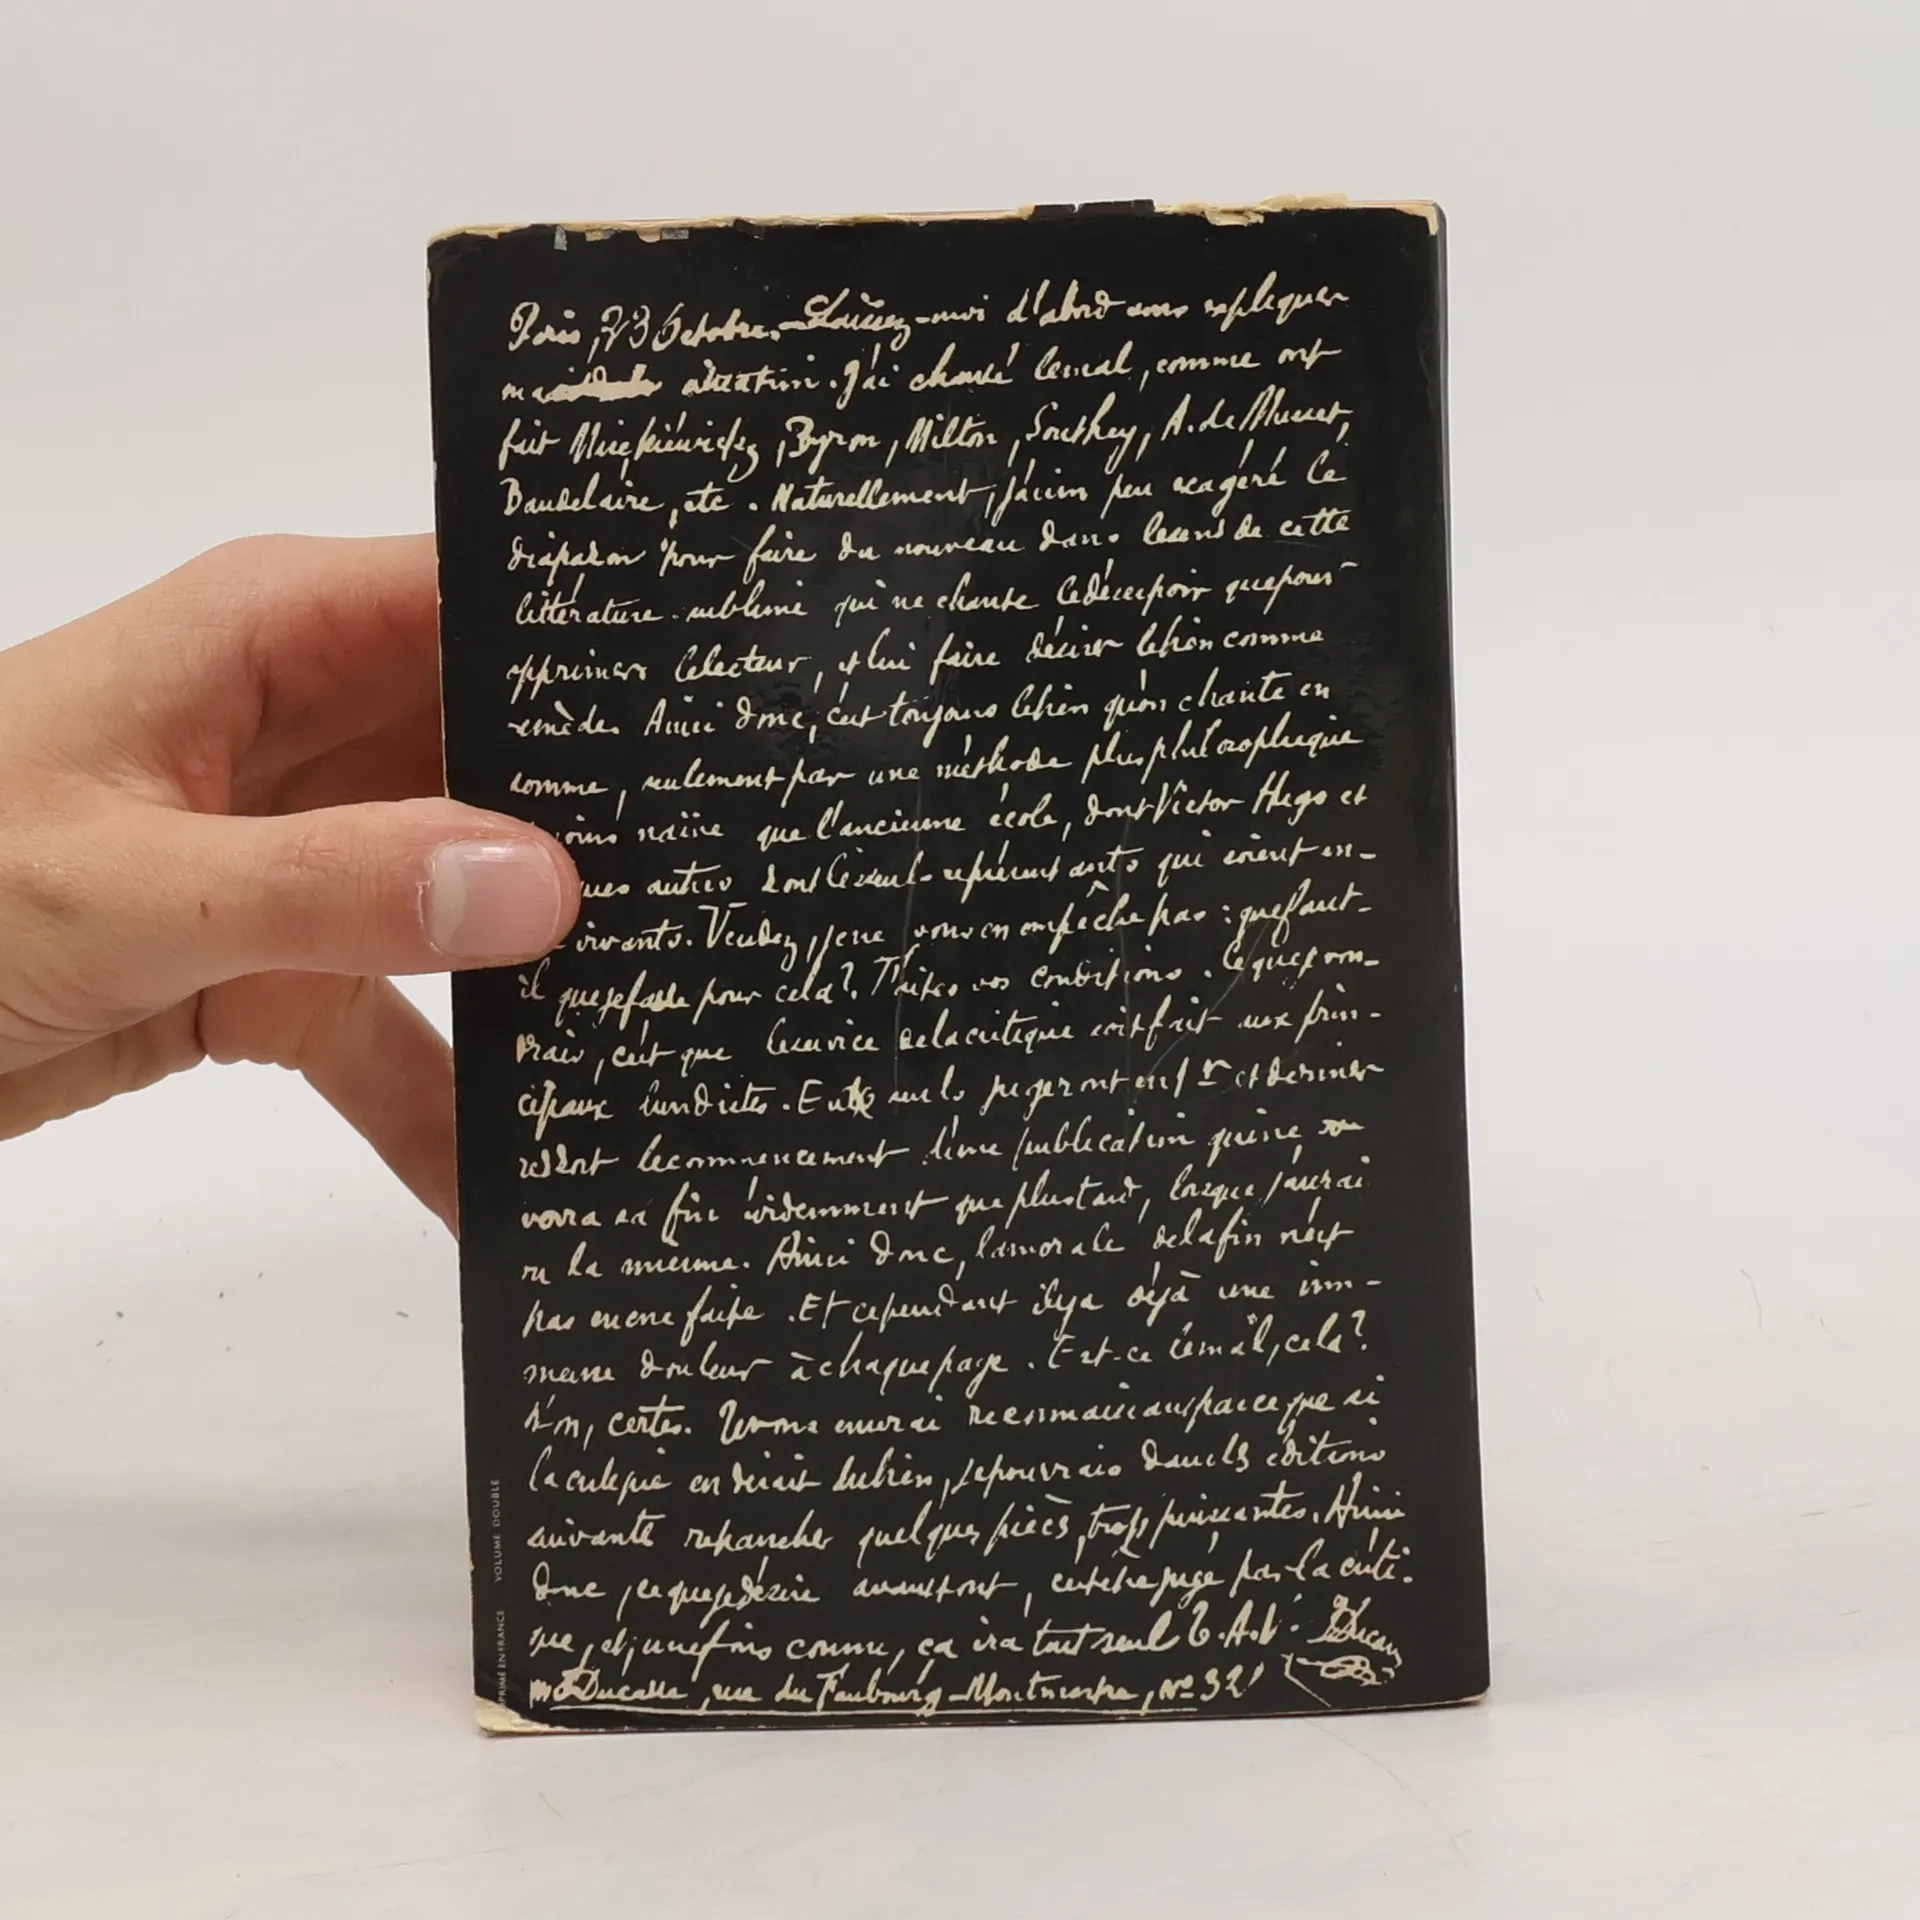 Paris, 23 Octobre. — Laissez-moi d'abord vous expliquer
ma situation. J'ai chanté le mal, comme ont
fait Mickiéwickz, Byron, Milton, Southey, A. de Musset,
Baudelaire, etc. Naturellement, j'ai un peu exagéré le
diapason pour faire du nouveau dans le sens de cette
littérature sublime qui ne chante le désespoir que pour
opprimer le lecteur, et lui faire désirer le bien comme
remède. Ainsi donc, c'est toujours le bien qu'on chante en
somme, seulement par une méthode plus philosophique
moins naïve que l'ancienne école, dont Victor Hugo et
ques autres sont les seuls représentants qui soient en-
vivants. Vendez, je ne vous en empêche pas : que faut-
il que je fasse pour cela? Faites vos conditions. Ce que je vou-
drais, c'est que le service de la critique soit fait aux prin-
cipaux lundistes. Eux seuls jugeront en 1er et dernier
ressort le commencement d'une publication qui ne
verra sa fin évidemment que plus tard, lorsque j'aurai
vu la mienne. Ainsi donc, la morale de la fin n'est
pas encore faite. Et cependant il y a déjà une im-
mense douleur à chaque page. Est-ce le mal, cela?
Non, certes. Je vous en serai reconnaissant parce que si
la critique en disait du bien, je pourrais dans les éditions
suivantes retrancher quelques pièces, trop puissantes. Ainsi
donc, ce que je désire avant tout, c'est être jugé par la criti-
que, et, une fois connu, ça ira tout seul. T. A. V. I. Ducasse
M. I. Ducasse, rue du Faubourg-Montmartre, No 32
IMPRIMÉ EN FRANCE VOLUME DOUBLE